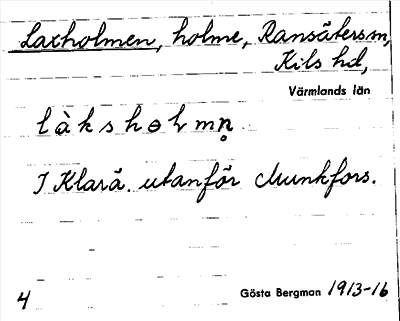 Laxholmen, holme, Ransätersm,
Kils hd,
Värmlands län
l à k s h ɵ l m n̥
I Klarä. utanför Munkfors.
4 Gösta Bergman 1913-16